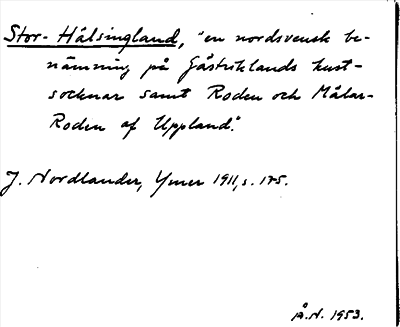 Stor-Hälsingland, "en nordsvensk be-
nämning på Gästriklands kust-
socknar samt Roden och Mälar-
Roden af Uppland."
J. Nordlander, Ymer 1911, s. 175.
Å.N. 1953.